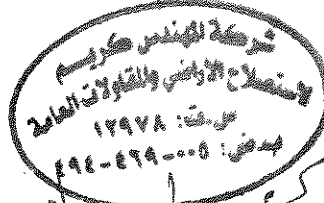 شركة المهندس كريم
لاستصلاح الأراضى والمقاولات العامة
س.ت: ١٢٩٧٨
ب.ض: ٥٠٠-٤٦٩-٤٩٤